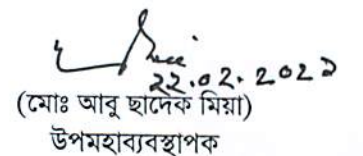 22.02.2022
(মোঃ আবু ছাদেক মিয়া)
উপমহাব্যবস্থাপক